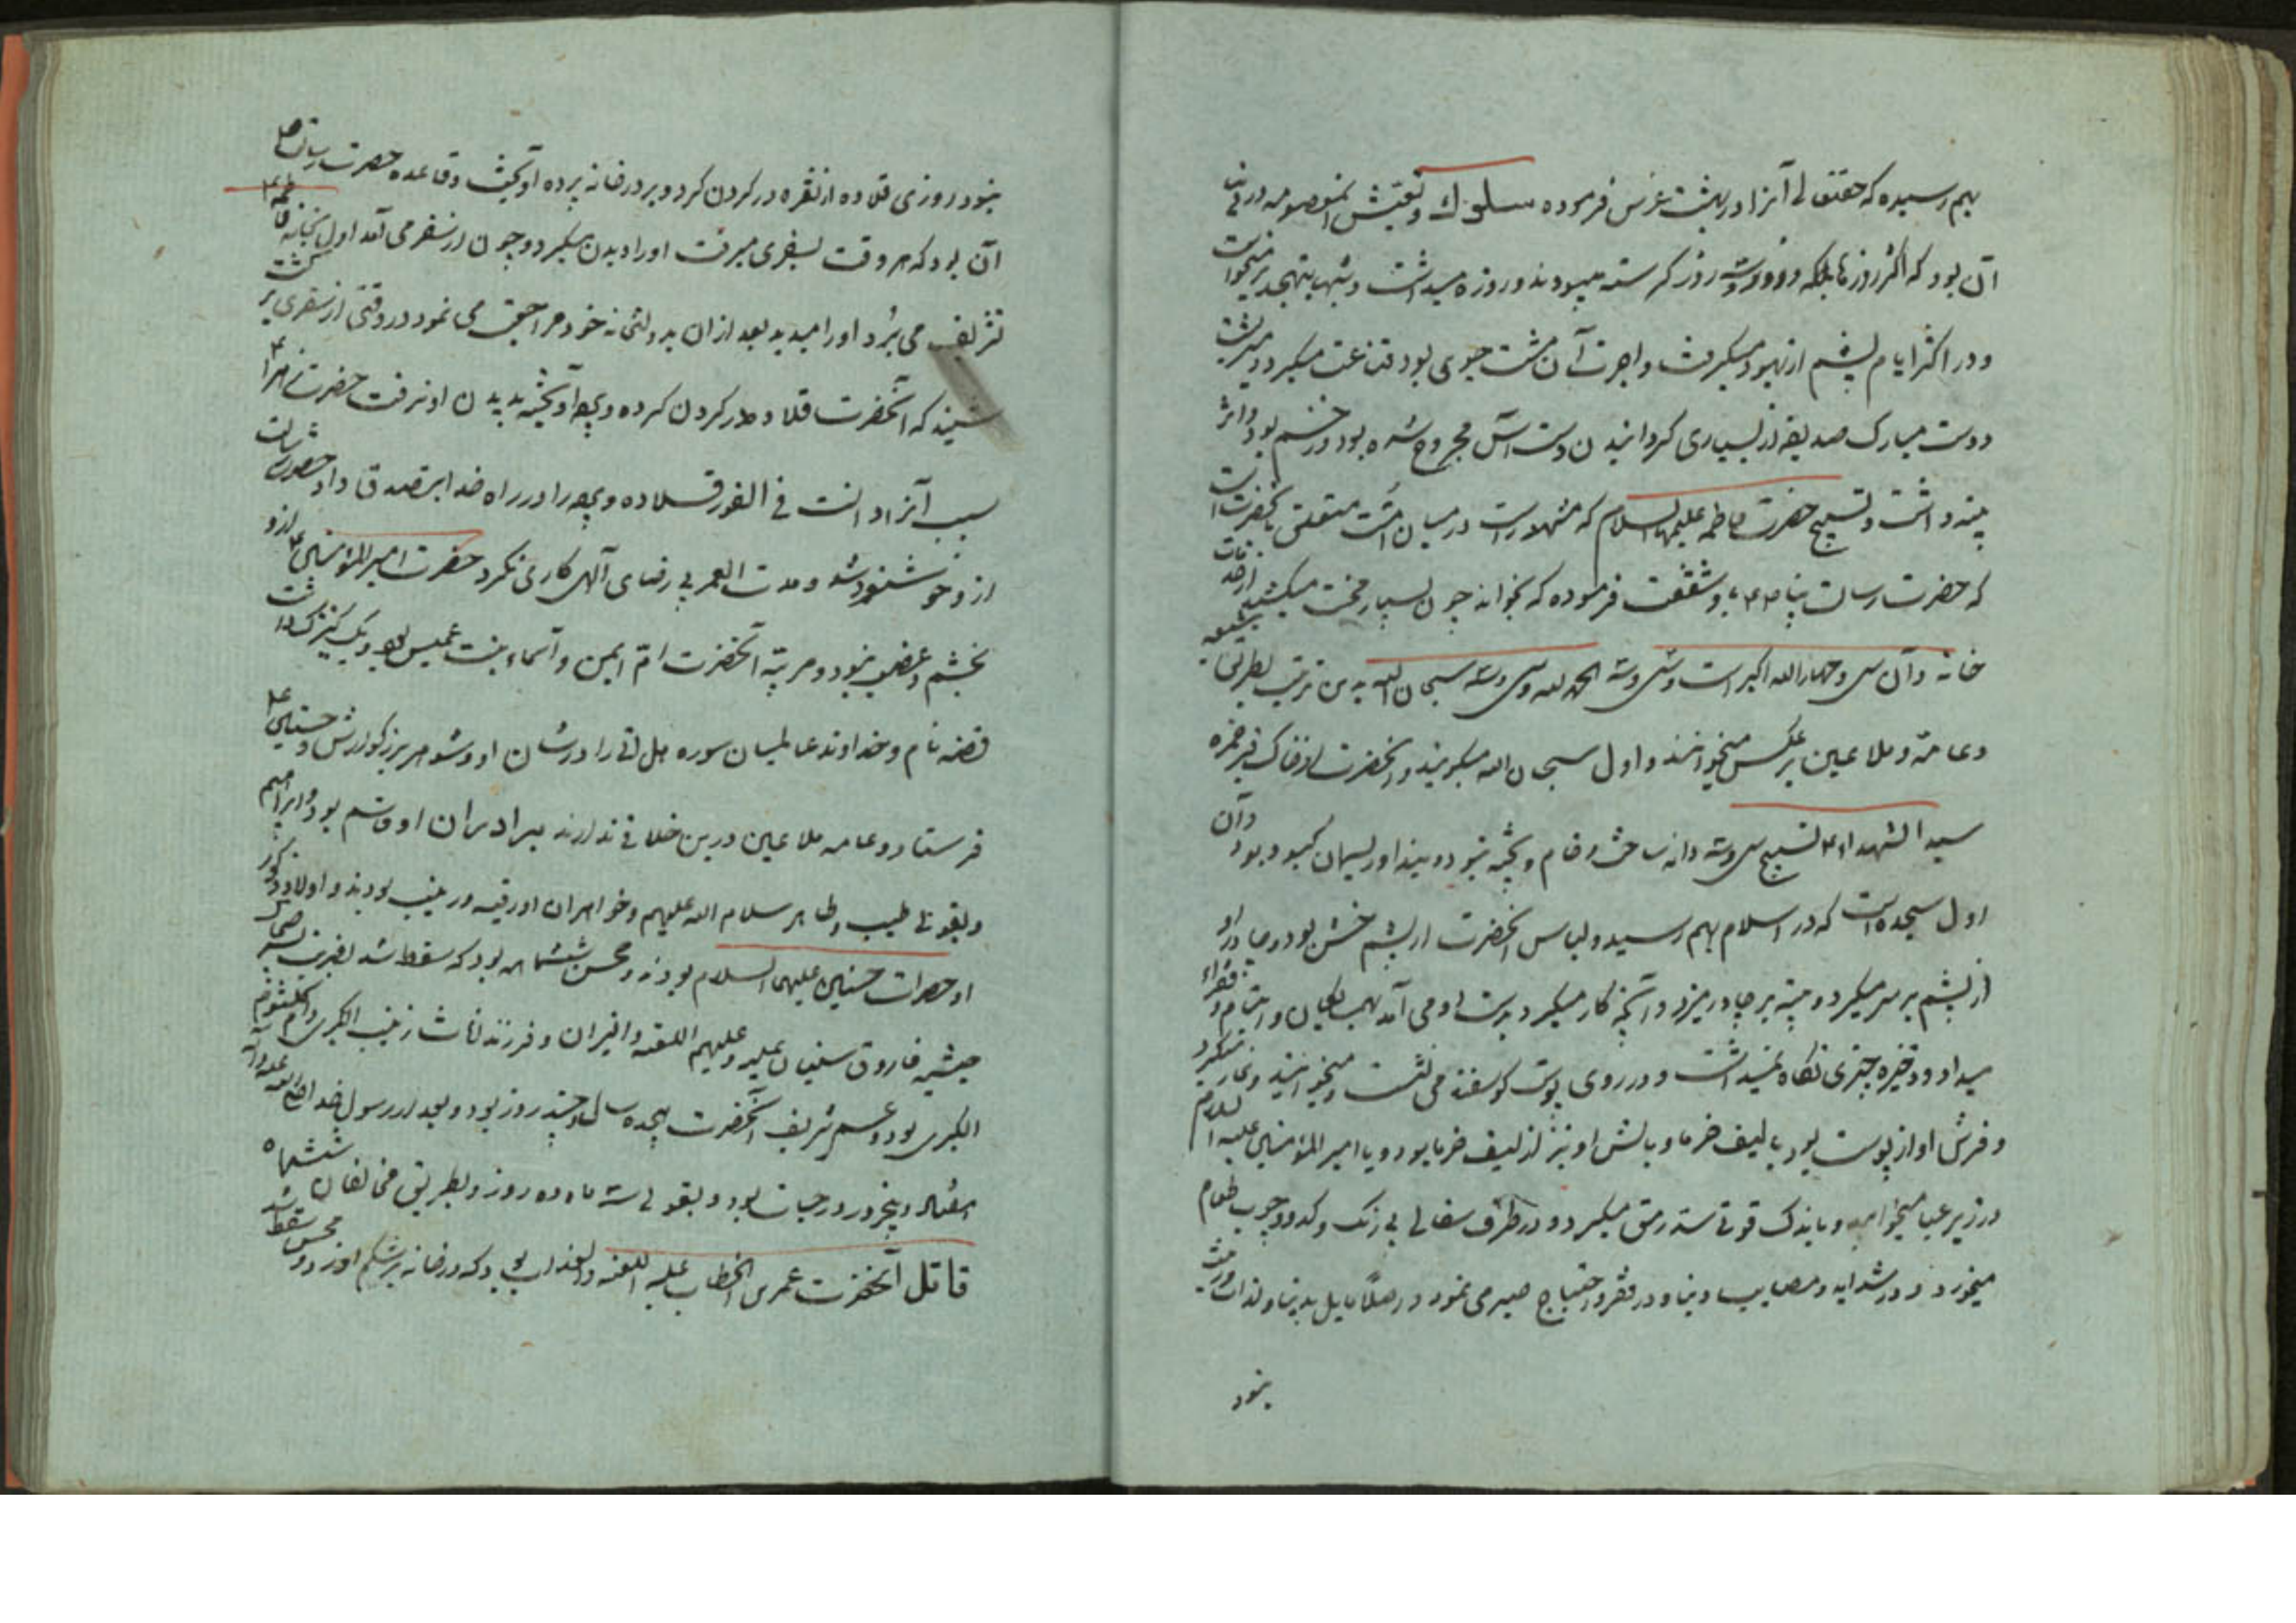 بهم رسیده که حقتعالی آنرا در بهشت غرس فرموده سلوک و تعیش آنمعصومه در دنیا
آن بود که اکثر روزها بلکه دو روز و سه روز گرسنه میبود و روزه میداشت و شبها بتهجد برمیخواست
و در اکثر ایام پشم از یهود میگرفت و اجرت آن مشت جوی بود قناعت میکرد و میرشت
و دست مبارک صدیقه از بسیاری گردانیدن دست آس مجروح شده بود و زخم بود و اثر
پینه داشت و تسبیح حضرت فاطمه علیها السلام که مشهور است در میان امت متعلق بآنحضرت است
که حضرت رسالت پناه باو شفقت فرموده که بخواند چون بسیار محنت میکشید از خدمات
خانه و آن سی و چهار الله اکبر است و سی و سه الحمد لله و سی و سه سبحان الله بدین ترتیب بطریق شیعه
و عامه و ملاعین برعکس میخوانند و اول سبحان الله میگویند و آنحضرت از خاک قبر حمزه
سید الشهداء تسبیح سی و سه دانه ساخت و خام و پخته نبود و بند او ریسمان کبود بود و آن
اول سبحه است که در اسلام بهم رسید و لباس آنحضرت از پشم خشن بود و چادر او
از پشم بر سر میکرد و پینه بر چادر میزد و آنچه کار میکرد بدست او می آمد بهمسایگان و ایتام و فقراء
میداد و ذخیره چیزی نگاه نمیداشت و در روی پوست گوسفند می نشست و میخوابید و نماز میکرد
و فرش او از پوست بود یا لیف خرما و بالش او نیز از لیف خرما بود و با امیر المؤمنین علیه السلام
در زیر عبا میخوابید و باندک قوتی سد رمق میکرد و در ظرف سفالی بی رنگ و کدو و چوب طعام
میخورد و در شداید و مصایب دنیا و در فقر و احتیاج صبر می نمود و اصلا مایل بدنیا و لذات
نبود
نبود روزی قلاده از نقره در گردن کرد و بر در خانه پرده آویخت و قاعده حضرت رسالت
آن بود که هر وقت بسفری میرفت او را دیدن میکرد و چون از سفر می آمد اول بخانه فاطمه
تشریف می برد و او را میدید بعد از آن بدولتخانه خود مراجعت می نمود در وقتی از سفری برگشت
شنید که آنحضرت قلاده در گردن کرده و پرده آویخته بدیدن او نرفت حضرت زهرا
سبب آنرا دانست فی الفور قلاده و پرده را در راه خدا تصدق داد حضرت رسالت
ازو خوشنود شد و مدت العمر بی رضای آلهی کاری نکرد حضرت امیر المؤمنین ازو
بخشم و غضب نبود و مربیه آنحضرت ام ایمن و اسماء بنت عمیس بود و یک کنیزک داشت
فضه نام و خداوند عالمیان سوره هل اتی را در شان او و شوهر بزرگوارش و حسنین
فرستاد و عامه ملاعین درین خلافی ندارند برادران او قاسم بود و ابراهیم
و بقولی طیب و طاهر سلام الله علیهم و خواهران او رقیه و زینب بودند و اولاد ذکور
او حضرات حسنین علیهما السلام بودند و محسن ششماهه بود که سقط شد بضرب
حبشیه فاروق سنیان علیه و علیهم اللعنه و النیران و فرزند اناث زینب الکبری و ام کلثوم
الکبری بود و عمر شریف آنحضرت هیجده سال و چند روز بود و بعد از رسول خدا صلی الله علیه و آله
هفتاد و پنجروز در حیات بود و بقولی سه ماه و ده روز و بطریق مخالفان ششماه
قاتل آنحضرت عمر بن الخطاب علیه اللعنه و العذاب بود که در خانه بر شکم او زد و محسن سقط شد